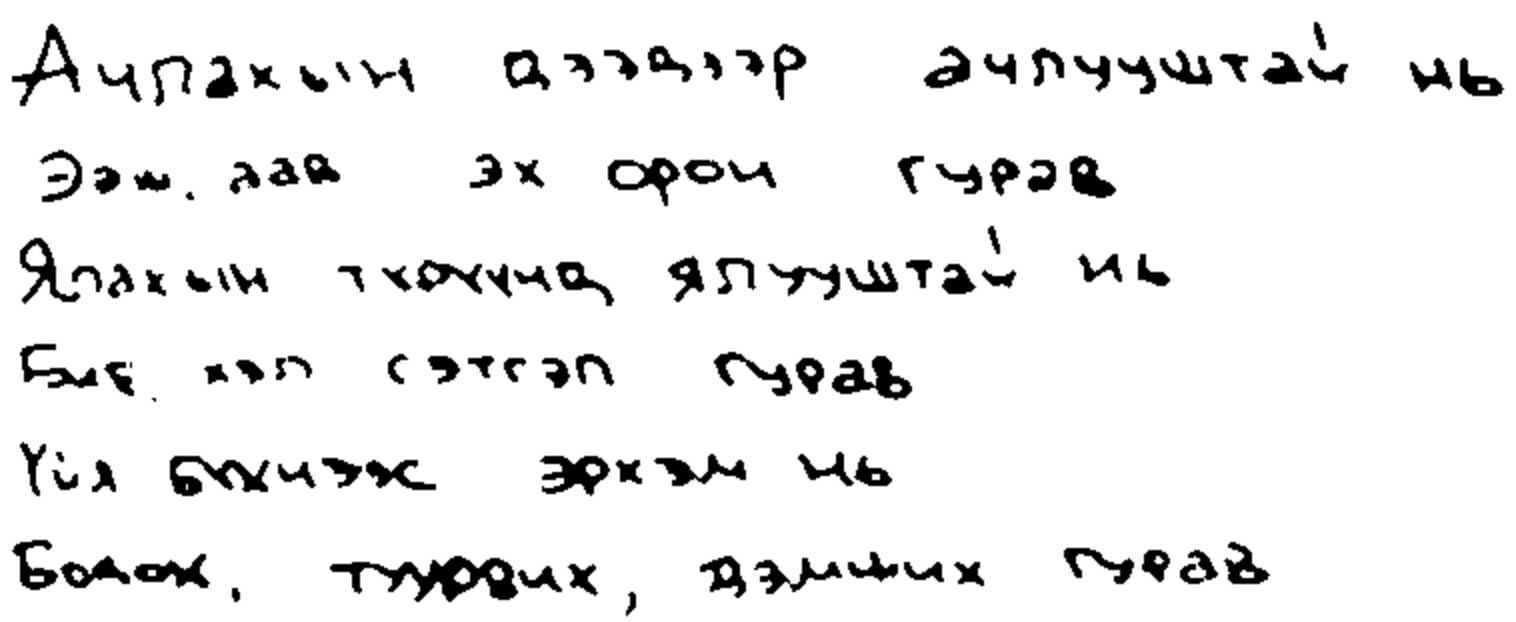 Ачлахын дээдээр ачлууштай нь
Ээж. аав эх орон гурав
Ялахын тухайд ялууштай нь
Бие. хэл сэтгэл гурав
Үйл бүхнээс эрхэм нь
Бодох, туурвих, дэмжих гурав